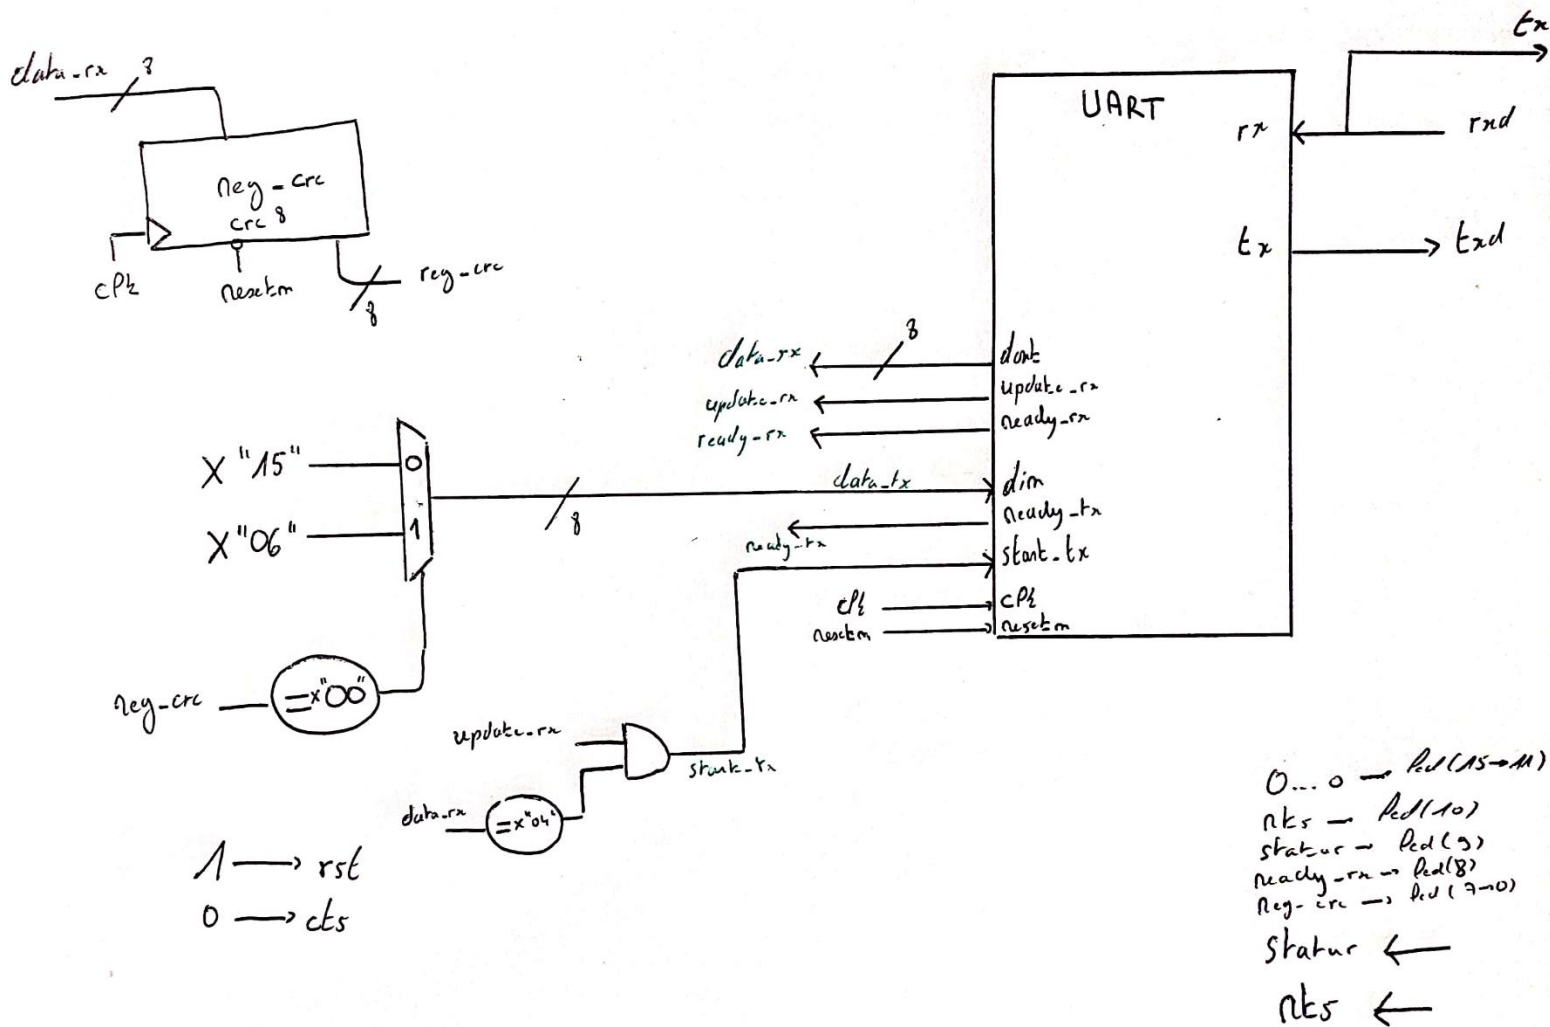 data_rx 8
reg_crc
crc 8
clk
resetn
8
reg_crc
tx
UART
rx
rxd
tx
txd
8
data_rx
dout
update_rx
update_rx
ready_rx
ready_rx
X "15"
0
X "06"
1
8
data_tx
din
ready_tx
ready_tx
start_tx
clk
clk
resetn
resetn
reg_crc
= x"00"
update_rx
start_tx
data_rx
= x"04"
1 → rst
0 → cts
0...0 → led(15→11)
rts → led(10)
status → led(9)
ready_rx → led(8)
reg_crc → led(7→0)
status ←
rts ←